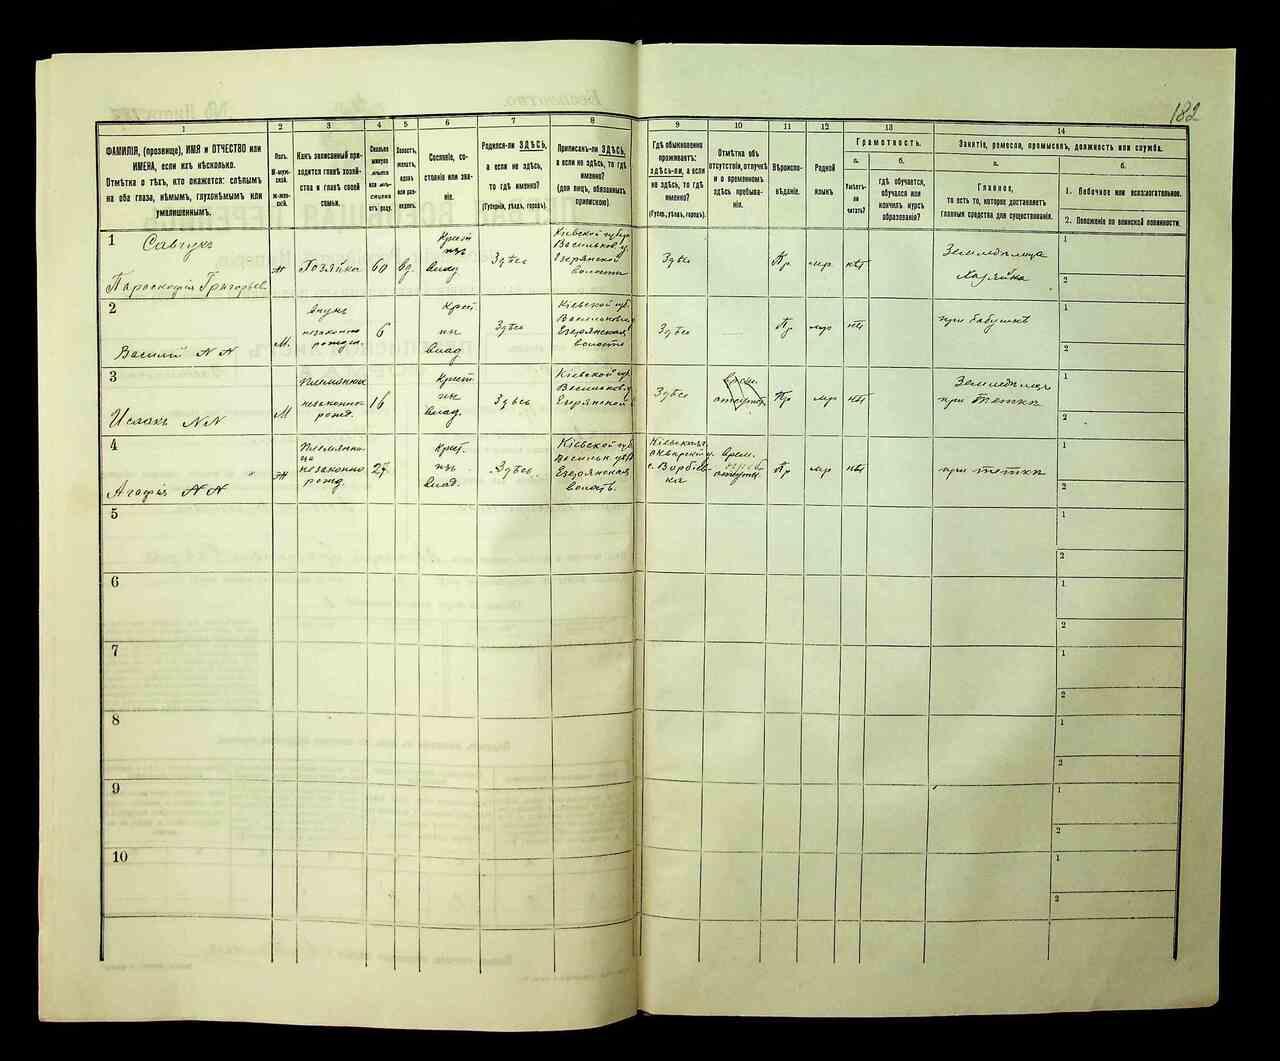 182
1
2
3
4
5
6
7
8
9
10
11
12
13
14
ФАМИЛІЯ, (прозвище), ИМЯ и ОТЧЕСТВО или
ИМЕНА, если ихъ нѣсколько.
Отмѣтка о тѣхъ, кто окажется: слѣпымъ
на оба глаза, нѣмымъ, глухонѣмымъ или
умалишеннымъ.
Полъ.
М-муж-
ской.
Ж-жен-
скій.
Какъ записанный при-
ходится главѣ хозяй-
ства и главѣ своей
семьи.
Сколько
минуло
лѣтъ
или мѣ-
сяцевъ
отъ роду.
Холостъ,
женатъ,
вдовъ
или раз-
веденъ.
Сословіе, со-
стояніе или зва-
ніе.
Родился-ли ЗДѢСЬ,
а если не здѣсь,
то гдѣ именно?
(Губернія, уѣздъ, городъ).
Приписанъ-ли ЗДѢСЬ,
а если не здѣсь, то гдѣ
именно?
(для лицъ, обязанныхъ
припискою).
Гдѣ обыкновенно
проживаетъ:
здѣсь-ли, а если
не здѣсь, то гдѣ
именно?
(Губер., уѣздъ, городъ).
Отмѣтка объ
отсутствіи, отлучкѣ
и о временномъ
здѣсь пребыва-
ніи.
Вѣроиспо-
вѣданіе.
Родной
языкъ.
Грамотность.
а.
Умѣетъ-
ли
читать?
б.
гдѣ обучается,
обучался или
кончилъ курсъ
образованія?
Занятіе, ремесло, промыселъ, должность или служба.
а.
Главное,
то есть то, которое доставляетъ
главныя средства для существованія.
б.
1. Побочное или вспомогательное.
2. Положеніе по воинской повинности.
1
Савчукъ
Параскофія Григорьев.
Ж
Хозяйка
60
вд.
Крест
изъ
влад
Здѣсь
Кіевской губер
Васильков. у.
Езерянской
волости
Здѣсь
Пр
мр.
нѣт
Земледѣлица
Хозяйка
1
2
2
Василий NN
М.
внукъ
незаконно
рожден.
6
Крест.
изъ
влад
Здѣсь
Кіевской губ.
Васильков. у.
Езерянская
волость
Здѣсь
Пр
мр
нѣт
при бабушкѣ
1
2
3
Исаакъ NN
М
Племянник
незаконно
рожд.
16
Крест.
изъ
влад.
Здѣсь
Кіевской губ.
Васильков. у.
Езерянской
Здѣсь
врем.
отсутст.
Пр
мр
нѣт
Земледѣлецъ
при теткѣ
1
2
4
Агафія NN
Ж
Племянни-
ца
незаконно
рожд.
Крест.
изъ
влад.
Здѣсь
Кіевской губ
Васильк. уѣз
Езерянская
волость.
врем.
Пр
мр
нѣт
при теткѣ
1
2
5
1
2
6
1
2
7
1
2
8
1
2
9
1
2
10
1
2